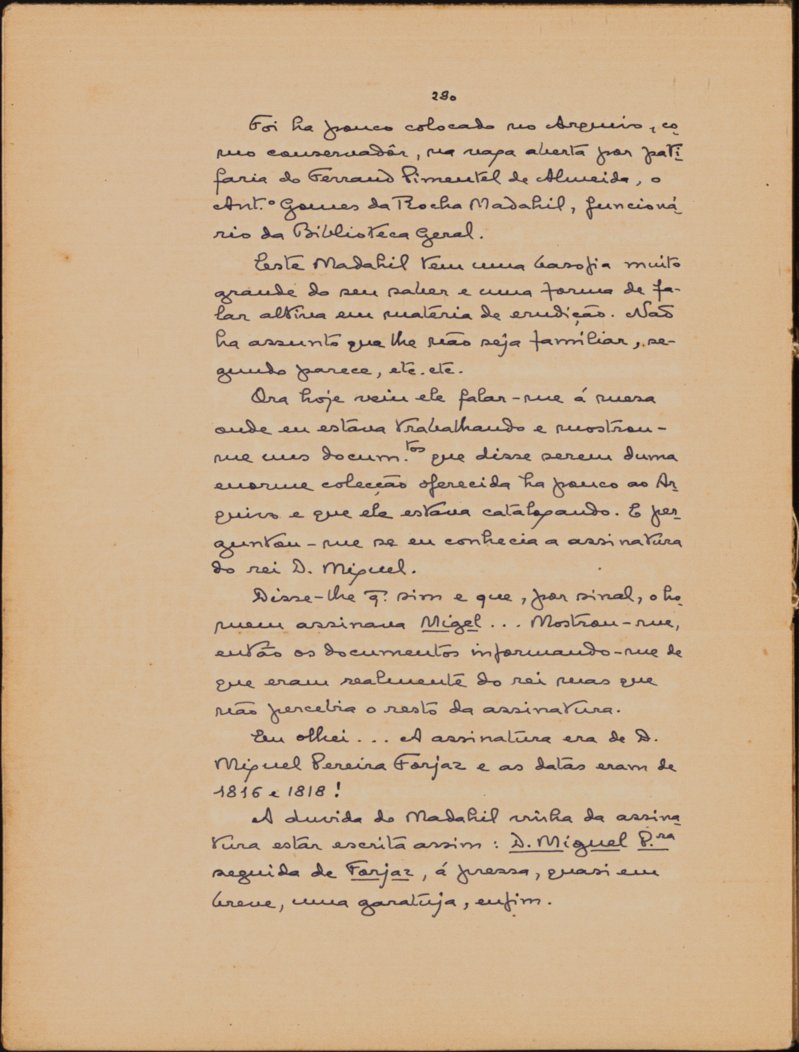 230
Foi ha pouco colocado no Arquivo, co-
mo conservadôr, na vaga aberta por pati-
faria do Ferrand Pimentel de Almeida, o
Ant.º Gomes da Rocha Madahil, funcioná-
rio da Biblioteca Geral.
Êste Madahil tem uma basofia muito
grande do seu saber e uma forma de fa-
lar altiva em matéria de erudição. Não
ha assunto que lhe não seja familiar, se-
gundo parece, etc. etc.
Ora hoje veiu ele falar-me á mesa
onde eu estava trabalhando e mostrou-
me uns docum.tos que disse serem duma
enorme colecção oferecida ha pouco ao Ar-
quivo e que ele estava catalogando. E per-
guntou-me se eu conhecia a assinatura
do rei D. Miguel.
Disse-lhe q: sim e que, por sinal, o ho-
mem assinava Migel... Mostrou-me,
então os documentos informando-me de
que eram realmente do rei mas que
não percebia o resto da assinatura.
Eu olhei... A assinatura era de D.
Miguel Pereira Forjaz e as datas eram de
1816 e 1818!
A duvida do Madahil vinha da assina-
tura estar escrita assim: D. Miguel P.ra
seguida de Forjaz, á pressa, quasi em
breve, uma garatuja, enfim.